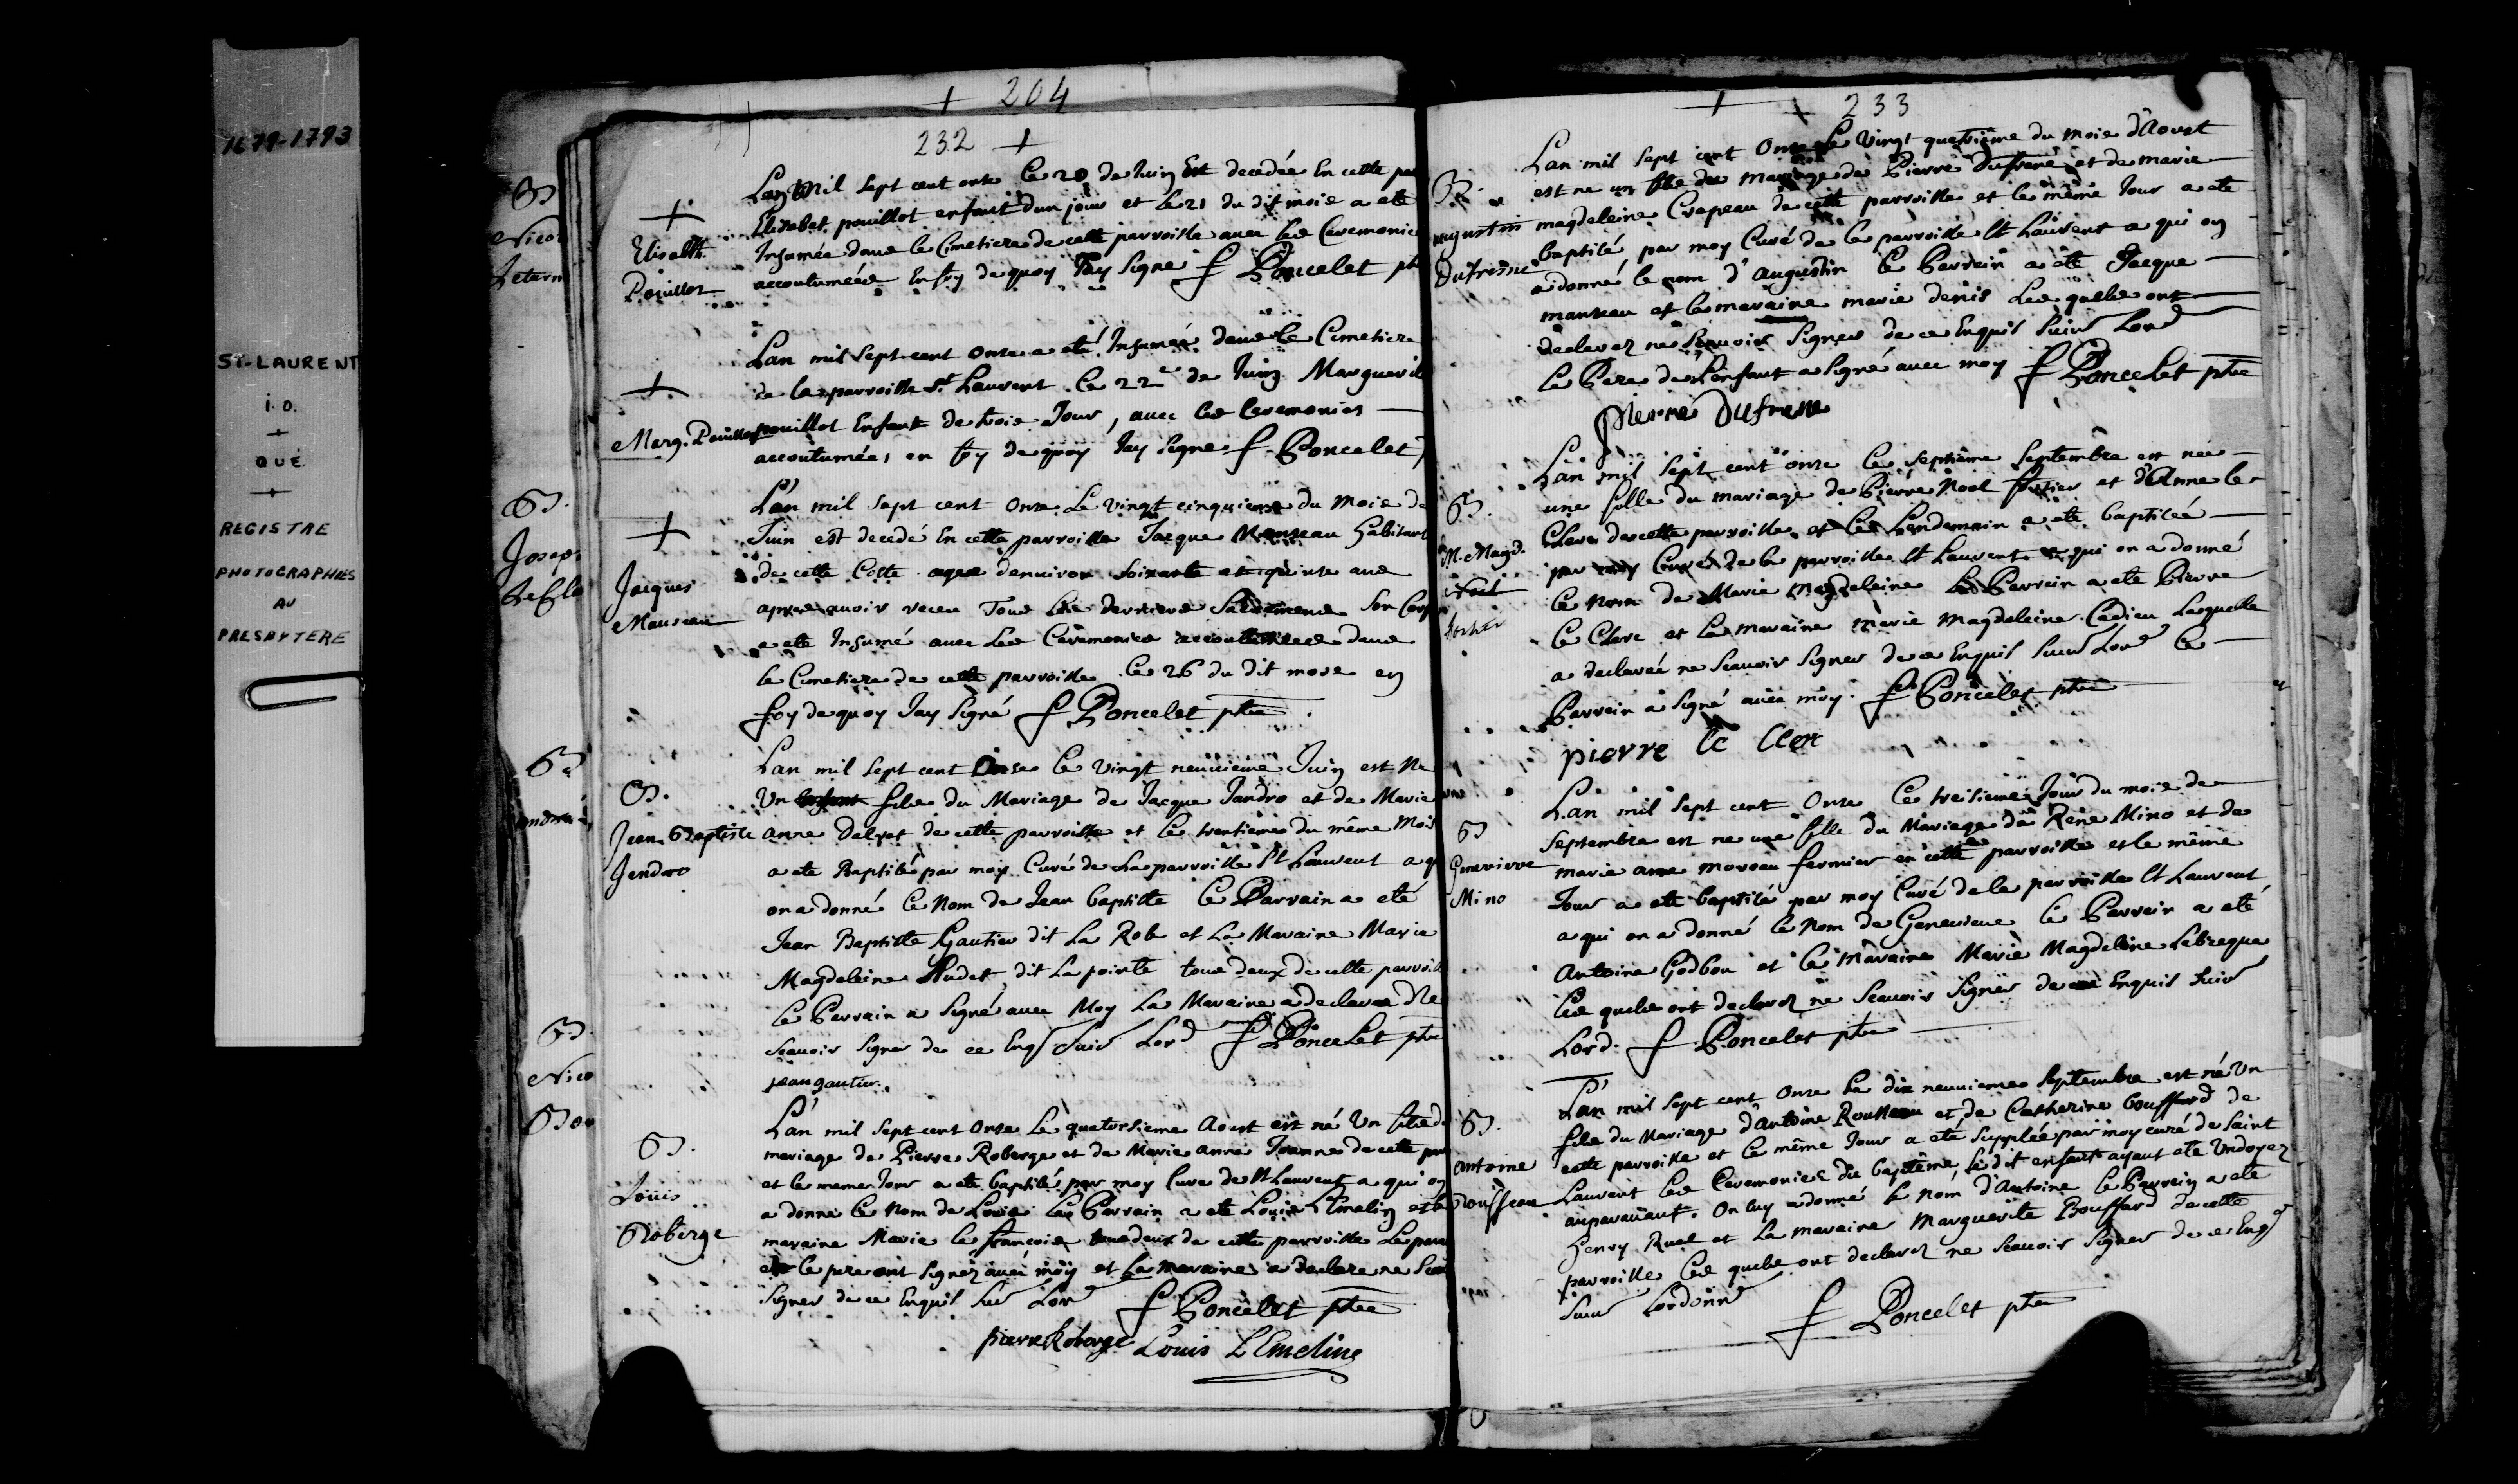 1679-1793
ST-LAURENT
i.o.
QUÉ.
REGISTRE
PHOTOGRAPHIÉS
AU
PRESBYTERE
B
Nico
Letarn
B.
Josep
B
B
Nico
Bou
+ 204
232 +
+
Elisabth.
Pouillot
Lan Mil Sept cent onse le 20 de Juin Est decedée En cette par
Elizabet pouillot enfant d'un jour et le 21 du dit mois a eté
Inhumée dans le Cimetiere de cette parroisse avec les Ceremonie
accoutumées En foy de quoy Jay Signe f Poncelet ptr
+
Marg. Pouillot
Lan mil Sept cent onse a eté Inhumée dans le Cimetiere
de la parroisse St Laurent le 22e de Juin Marguerit
pouillot Enfant de trois Jour, avec les Ceremonies
accoutumées en foy de quoy Jay Signe f Poncelet
+
Jacques
Manseau
L'an mil Sept cent Onse Le vingt cinquieme du Mois de
Juin est decedé En cette parroisse Jacque Manseau habitant
de cette Cotte agee denviron Soixante et quinse ans
apres avoir receu Tous les derniers Sacremens Son Corps
a eté Inhumé avec Les Cérémonies accoutumées dans
le Cimetiere de cette parroisse le 26 du dit mois en
foy de quoy Jay Signé f Poncelet ptre
B.
Jean Baptiste
Jendro
Lan mil Sept cent Onse le vingt neuvieme Juin est Ne
Un enfant fils du Mariage de Jacque Jandro et de Marie
anne Dalret de cette parroisse et le trentieme du même Mois
a eté Baptisé par moy Curé de La parroisse St Laurent a qui
on a donné le Nom de Jean baptiste le Parrain a eté
Jean Baptiste Gautier dit La Rob et La Maraine Marie
Magdeleine Audet dit La pointe tous deux de cette parroisse
le Parrain a Signé avec Moy La Maraine a declarée Ne
Scavoir Signer de ce Enqs Suiv Lord f Poncelet ptre
jean gautier.
B.
Louis
Roberge
L'an mil Sept cent Onse Le quatorsieme Aoust est né Un fils du
mariage de Pierre Roberge et de Marie anne Joanne de cette par
et le meme Jour a eté baptisé par moy Curé de St Laurent a qui on
a donné le Nom de Louis Le Parrain a eté Louis LEmelin et la
maraine Marie le francois tous deux de cette parroisse Le pare
et le pere ont Signéz avec moy et La Maraine a declare ne Scav
Signer de ce Enquis Suiv Lord f Poncelet ptre
pierre Roberge Louis LEmeline
233
B.
augustin
Dufresne
Lan mil Sept cent Onse Le Vingt quatrieme du Mois d'Aoust
est ne un fils du mariage de Pierre Dufrene et de marie
magdeleine Crapeau de cette parroisse et le même Jour a eté
baptisé par moy Curé de la parroisse St Laurent a qui on
a donné le nom d'augustin le Parrein a eté Jacque
manseau et la maraine marie denis Les quelle ont
declarez ne Scavoir Signer de ce Enquis Suiv Lord
Le Pere de l'enfant a Signé avec moy f Poncelet ptre
pierre Dufresne
B.
M. Magd.
Noel
Lan mil Sept cent onse le Septième Septembre est née
une fille du mariage de Pierre Noel fortier et d'Anne le
Clerc de cette parroisse et le Lendemain a eté baptisée
par moy Curé de la parroisse St Laurent a qui on a donné
le Nom de Marie Magdeleine Le Parrein a eté Pierre
Le Clerc et La maraine marie magdeleine Cadieu Laquelle
a declarée ne Scavoir Signer de ce Enquis Suiv Lord le
Parrein a Signé avec moy. f Poncelet ptre
pierre le clerc
B
Genevieve
Mino
Lan mil Sept cent Onse le treisieme Jour du mois de
Septembre est ne une fille du Mariage de Réne Mino et de
marie anne moreau fermier en cette parroisse et le même
Jour a eté baptisé par moy Curé de la parroisse St Laurent
a qui on a donné le Nom de Genevieve le Parrein a eté
Antoine Godbou et la maraine Marie Magdeleine Lebreque
Les quels ont declarez ne Scavoir Signer de ce Enquis Suiv
Lord. f Poncelet ptre
B.
Antoine
Rousseau
L'an mil Sept cent Onse Le dix neuvieme Septembre est né Un
fils du Mariage d'Antoine Rousseau et de Catherine bouffard de
cette parroisse et le même Jour a eté Supplée par moy curé de Saint
Laurent les Ceremonies du baptême, le dit enfant ayant eté Undoyez
auparavant. On luy a donné le Nom d'Antoine le Parrein a eté
Henry Ruel et La maraine Marguerite Bouffard de cette
parroisse les quels ont declarez ne Scavoir Signer de ce Enqs
Suiv Lordonne f Poncelet ptre